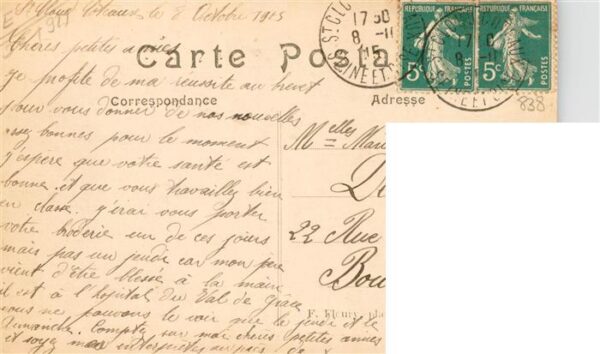 St Cloud Coteaux le 8 Octobre 1915
Chères petites amies
Carte Posta
je profite de ma réussite au brevet
Correspondance
Adresse
pour vous donner de nos nouvelles
assez bonnes pour le moment
j'espère que votre santé est
bonne et que vous travaillez bien
en classe. j'irai vous porter
votre broderie un de ces jours
mais pas un jeudi car mon père
vient d'être blessé à la main
il est à l'hôpital du Val de Grâce
nous ne pouvons le voir que le jeudi et le
dimanche. Comptez sur moi chères petites amies
et soyez mes interprètes auprès
de
Melles Mau
22 Rue
Bou
F. Fleury, ph
ST CLO
17 30
8 - 11
15
SEINE ET OISE
REPUBLIQUE FRANÇAISE
5c
POSTES
REPUBLIQUE FRANÇAISE
5c
POSTES
838